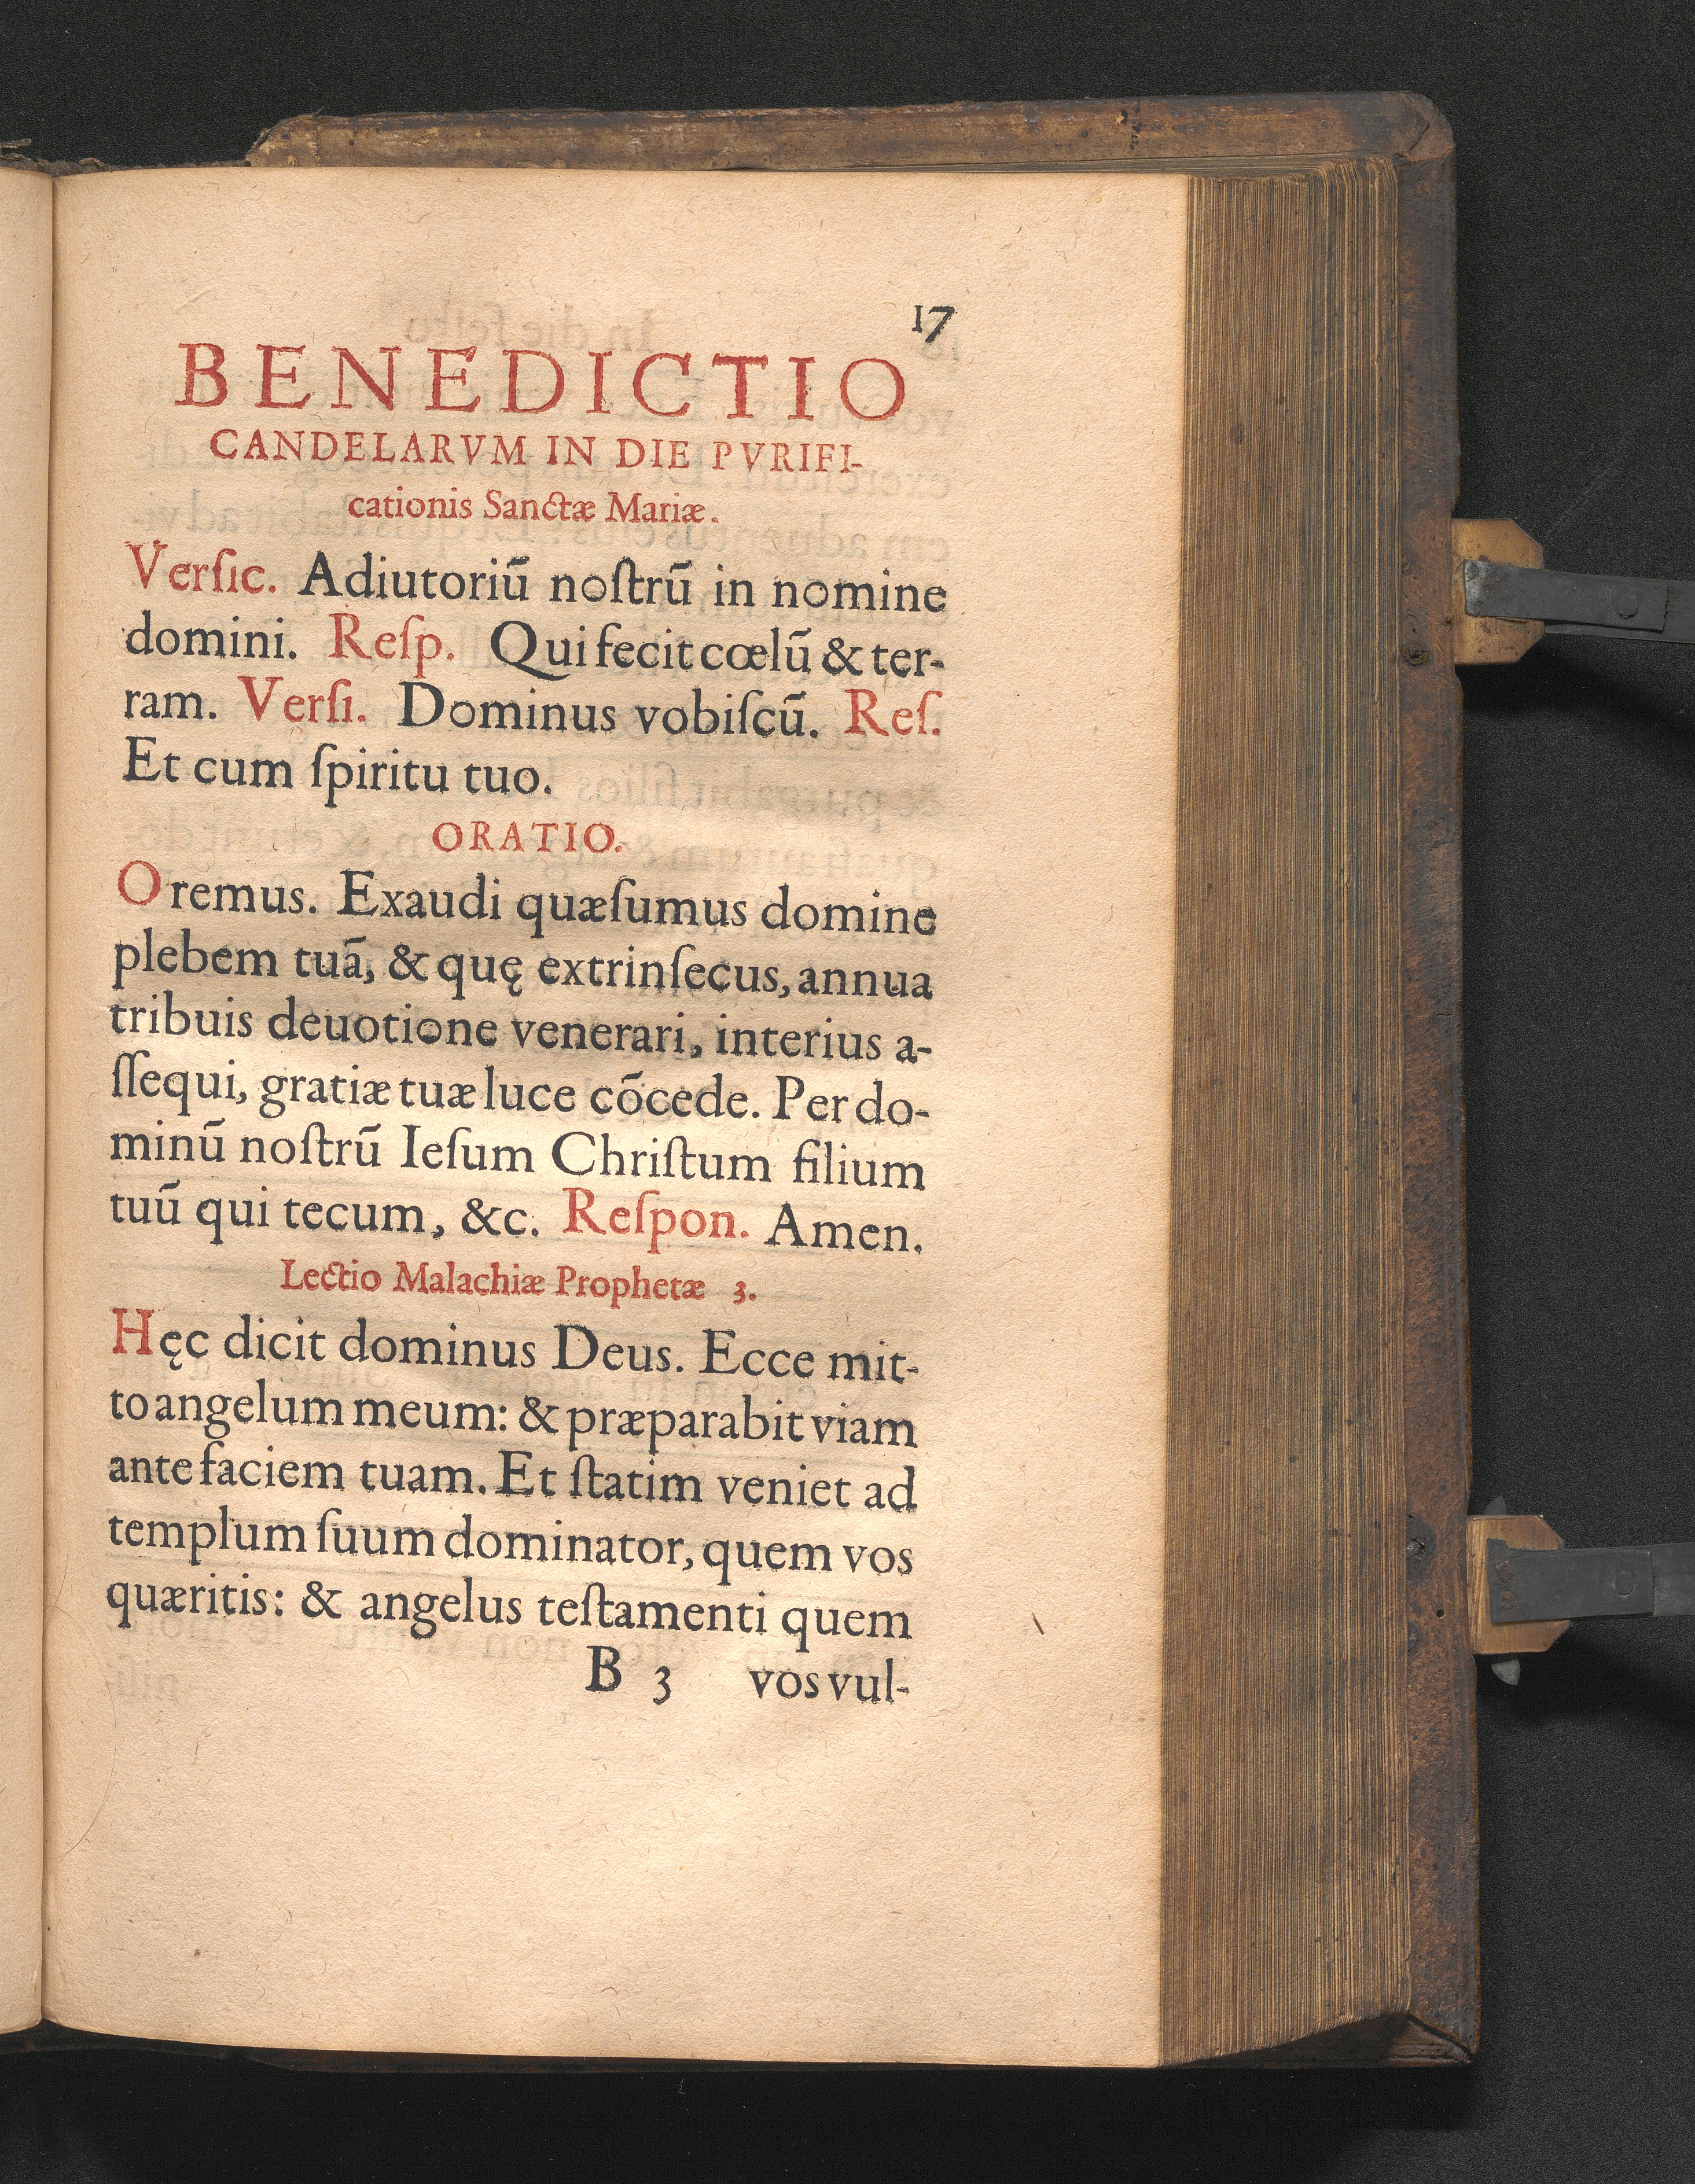 17
BENEDICTIO
CANDELARVM IN DIE PVRIFI-
cationis Sanctæ Mariæ.
Verſic. Adiutoriū noſtrū in nomine
domini. Reſp. Qui fecit cœlū & ter-
ram. Verſi. Dominus vobiſcū. Reſ.
Et cum ſpiritu tuo.
ORATIO.
Oremus. Exaudi quæſumus domine
plebem tuā, & quę extrinſecus, annua
tribuis deuotione venerari, interius a-
ſſequi, gratiæ tuæ luce cōcede. Per do-
minū noſtrū Ieſum Chriſtum filium
tuū qui tecum, &c. Reſpon. Amen.
Lectio Malachiæ Prophetæ 3.
Hęc dicit dominus Deus. Ecce mit-
to angelum meum: & præparabit viam
ante faciem tuam. Et ſtatim veniet ad
templum ſuum dominator, quem vos
quæritis: & angelus teſtamenti quem
B 3 vos vul-